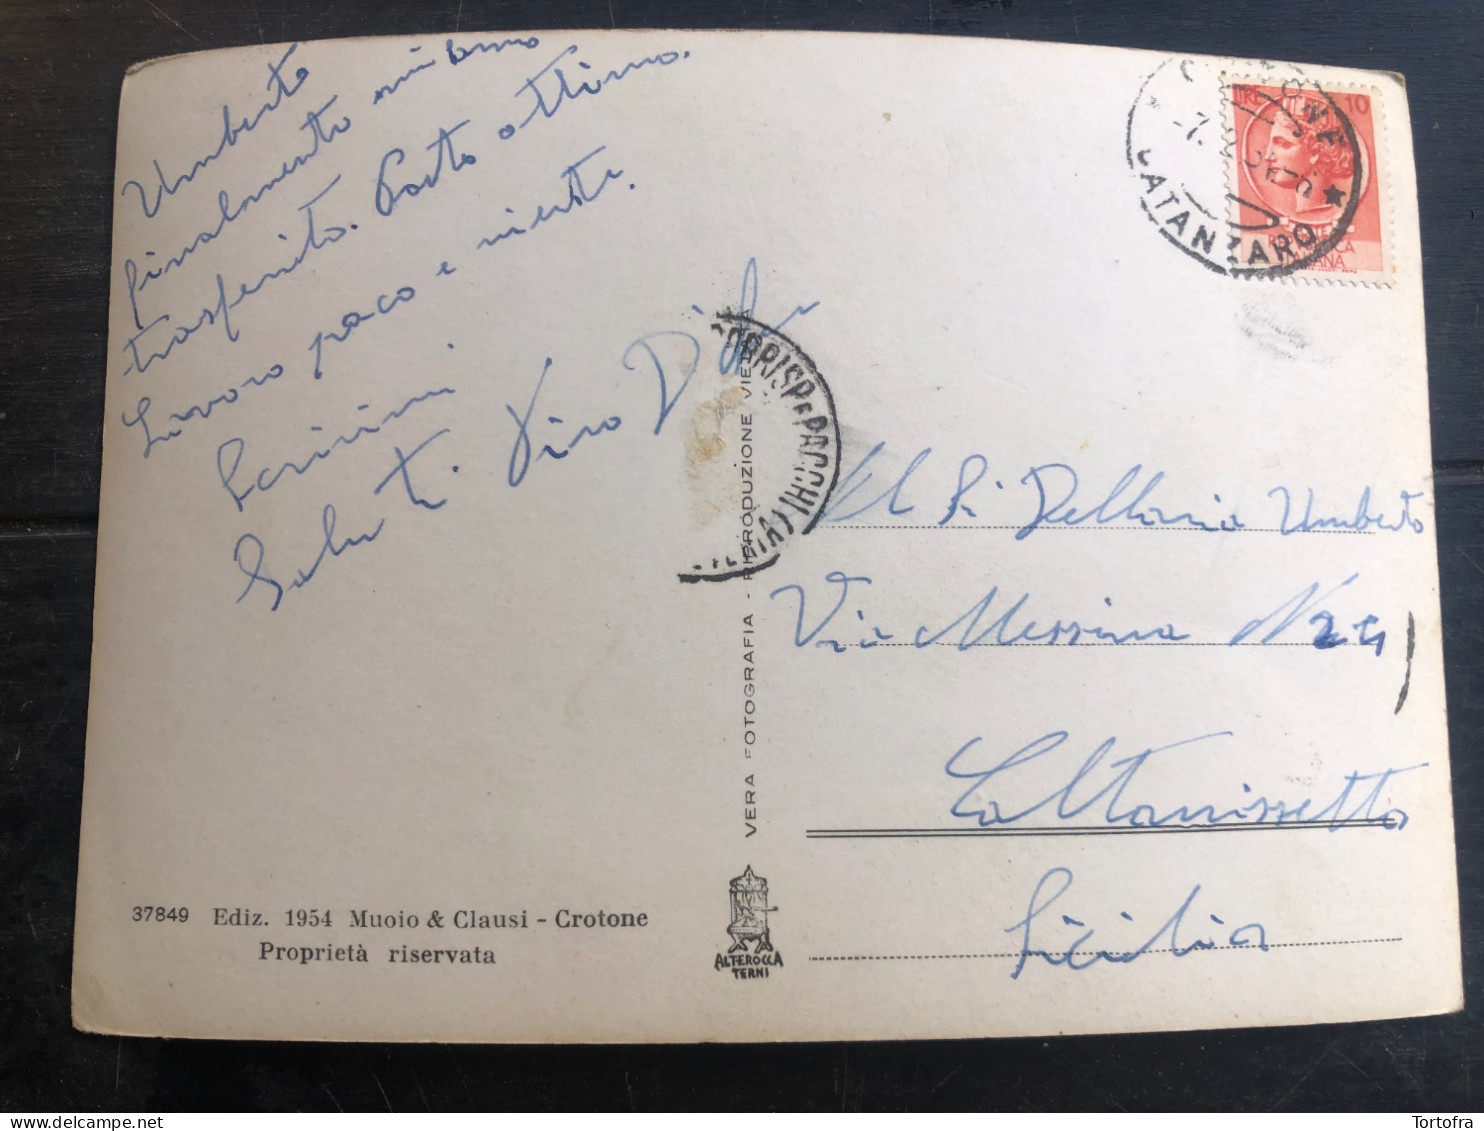 Umberto
finalmente mi sono
trasferito. Posto ottimo.
Lavoro poco e niente.
Scrivimi
Saluti.
LIRE 10
REPUBBLICA
ITALIANA
CATANZARO
CORRISP. E PACCHI
VERA FOTOGRAFIA - RIPRODUZIONE VIETATA
Umberto
Via Messina N 24
Caltanissetta
Sicilia
37849 Ediz. 1954 Muoio & Clausi - Crotone
Proprietà riservata
ALTEROCCA
TERNI
Tortofra